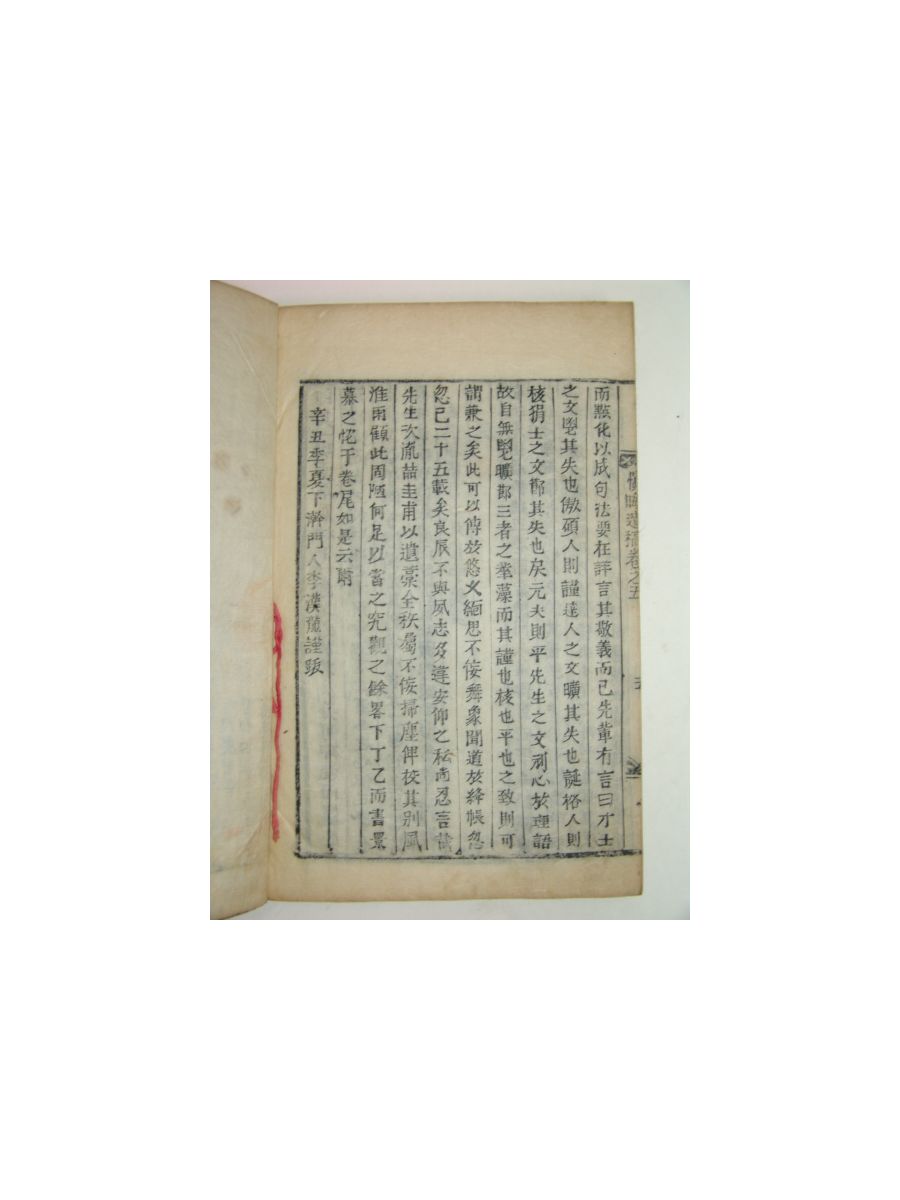 遺稿卷之五
而㸃化以成句法要在詳言其敬義而已先輩有言曰才士
之文其失也傲碩人則謹達人之文曠其失也誕格人則
核狷士之文鄙其失也矣元夫則平先生之文刳心於理語
故自無曠鄙三者之藻而其謹也核也平也之致則可
謂兼之矣此可以傳於悠久緬思不侫舞象聞道於絳帳忽
忽已二十五載矣良辰不與夙志多違安仰之私尚忍言哉
先生次胤喆圭甫以遺稾全秩屬不侫掃塵俾校其别風
淮雨顧此固陋何足以當之究觀之餘畧下丁乙而書景
慕之忱于卷尾如是云爾
辛丑季夏下澣門人李漢龍謹跋